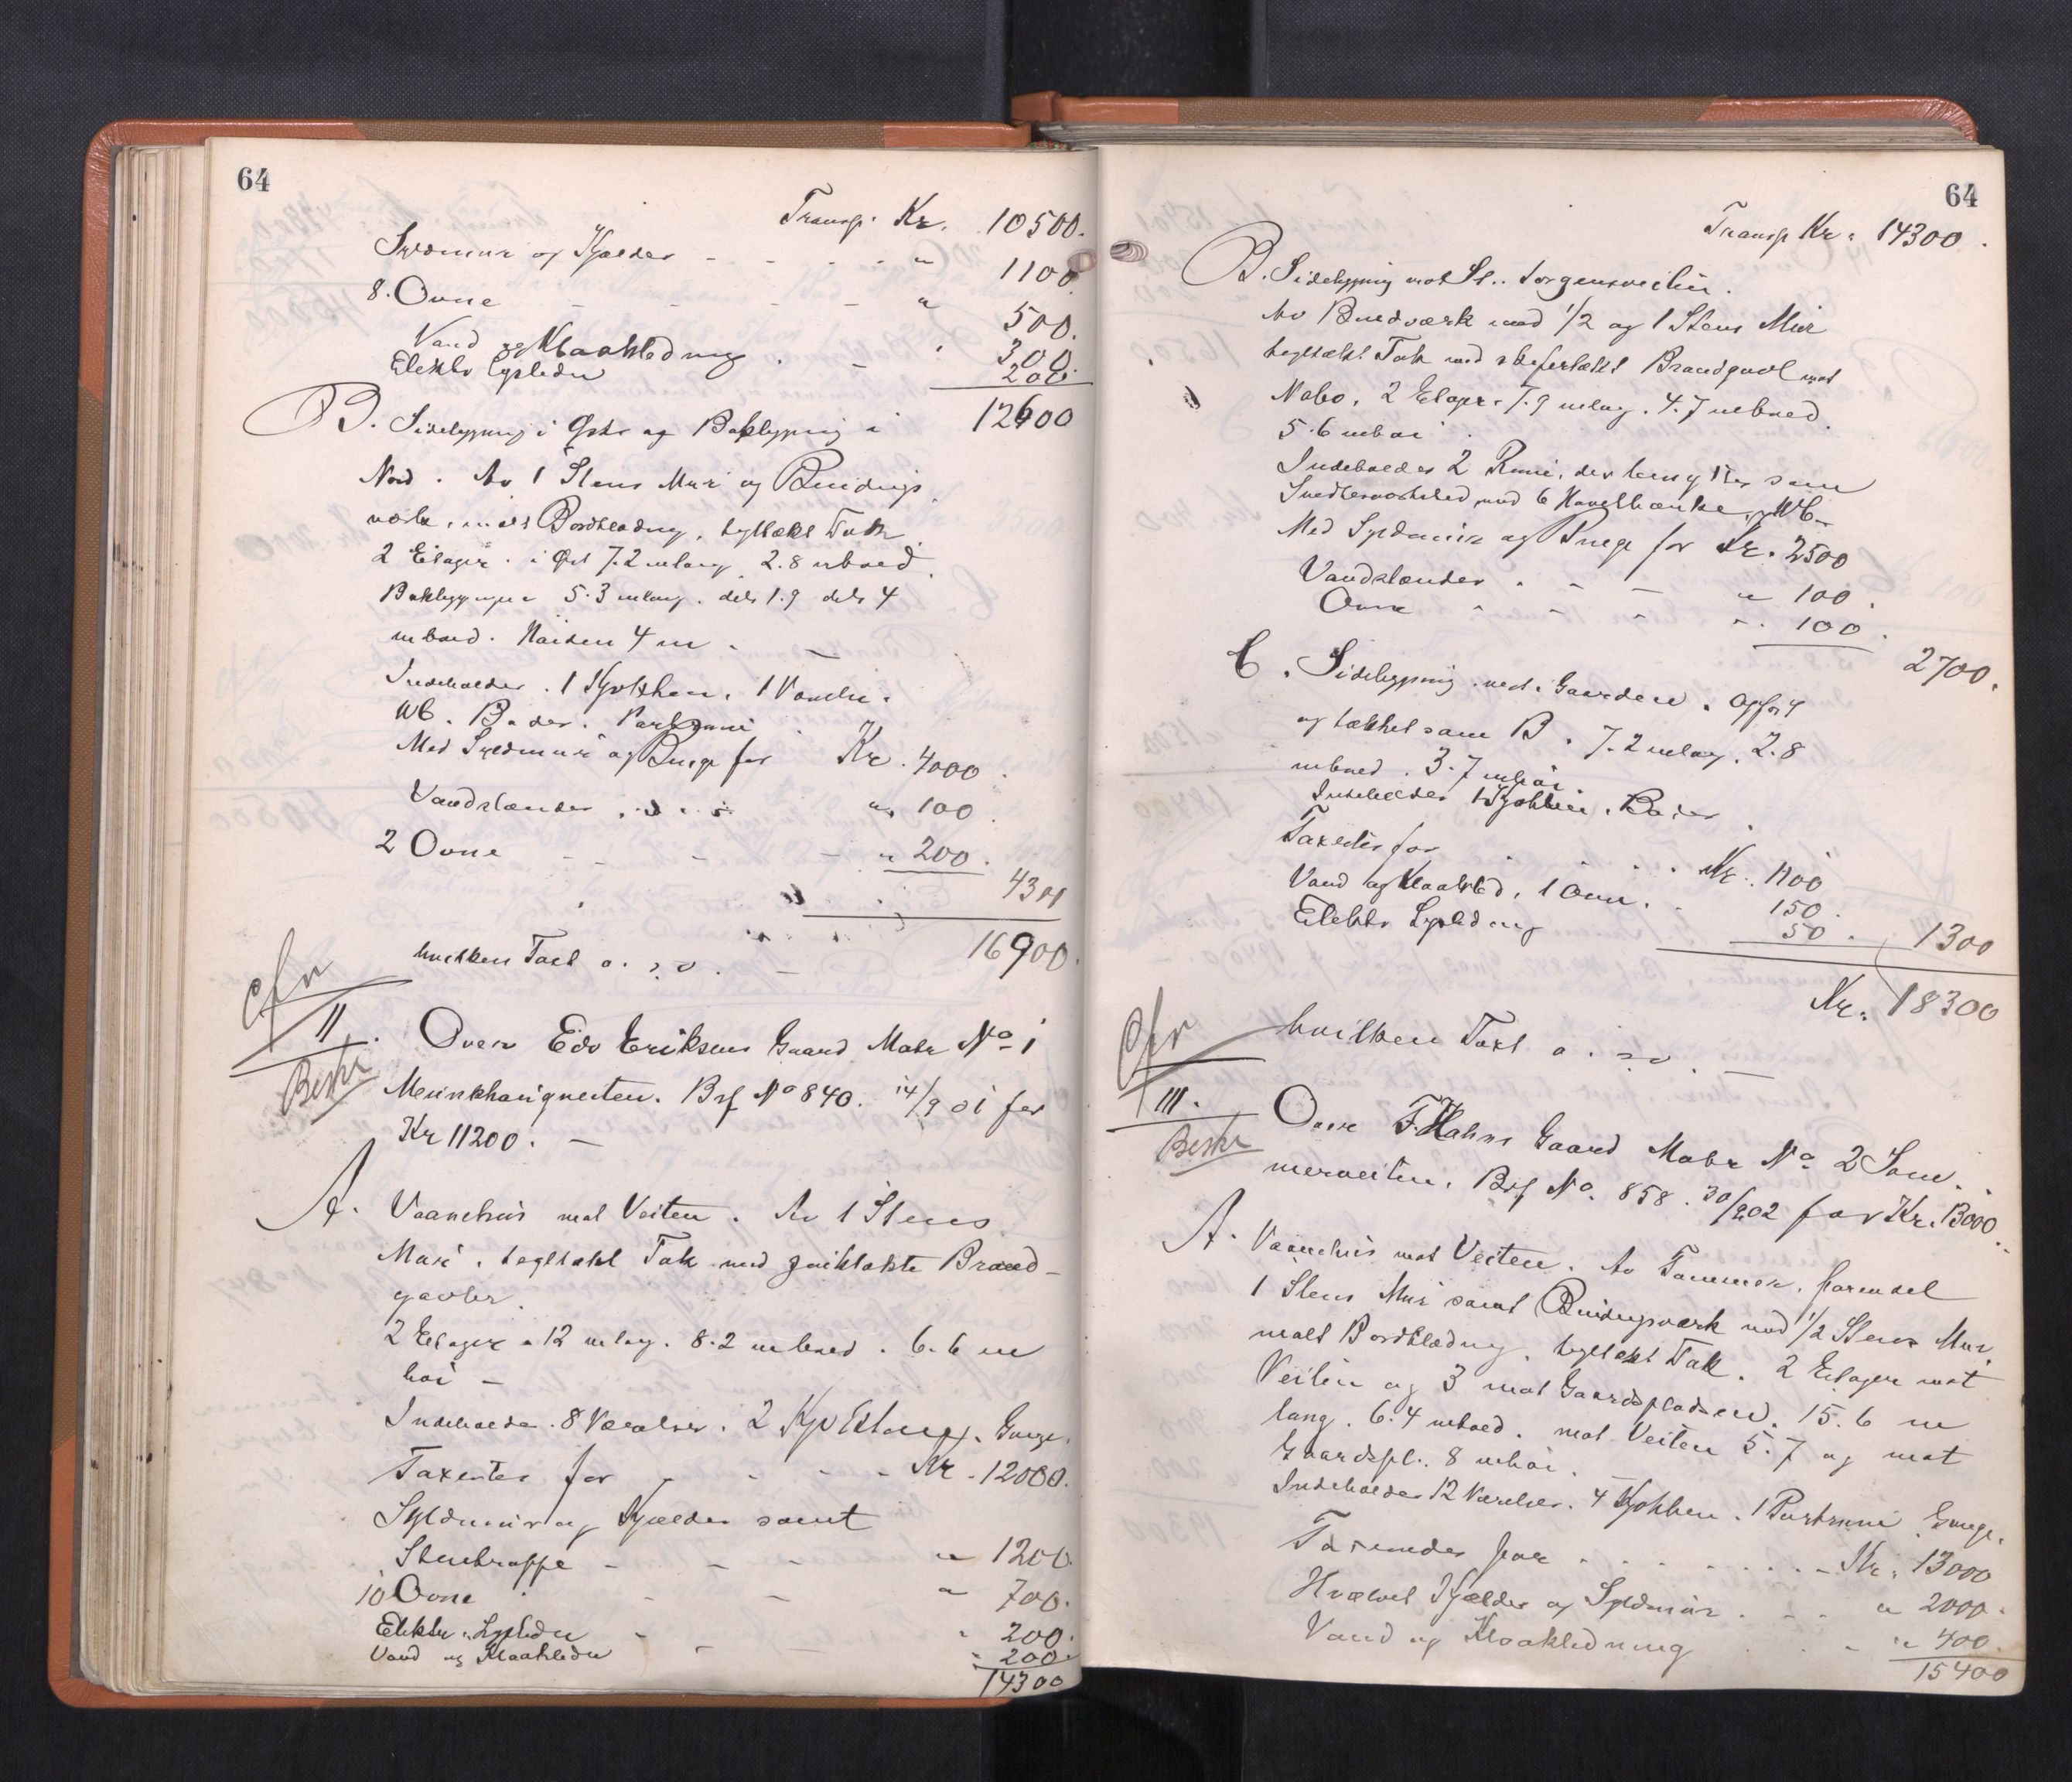 64
Transp. Kr. 10500.
Syldmur og Kjælder - - - - " 1100
8. Ovne - - - - " 500.
Vand og Kloakledning . - " 300.
Elektr Lysledn 200.
12600
B. Sidebygning i Øst og Bakbygning i
Nord. Av 1 Stens Mur og Bindings
værk, malt Bordklædng, tegltækt Tak
2 Etager. i Øst 7.2 m lang 2.8 m bred.
Bakbygningen 5.3 m lang. dels 1.9 dels 4
m bred. Høiden 4 m. -
Indeholder. 1 Kjøkken, 1 Vandr.
WC. Boder. Portrum.
Med Syldmur og Gange for Kr. 4000.
Vandklænder . . . . " 100.
2 Ovne - - - - " 200.
4300
16900.
hvilken Taxt o. s. v. -
cfr
II. Over Edv Eriksens Gaard Matr No 1
Beskr
Munkhaugveiten. Brf No 840. 14/9 01 for
Kr 11200. -
A. Vaanehus mot Veiten. Av 1 Stens
Mur, tegltækt Tak med zinktækte Brand-
gavler.
2 Etager. 12 m lang. 8.2 m bred. 6.6 m
høi -
Indeholder. 8 Værelser. 2 Kjøkken, Gange.
Taxertes for - - - - Kr. 12000.
Syldmur og Kjælder samt
Stentrappe - - - " 1200.
10 Ovne - - - " 700.
Elektr. Lysledn - " 200.
Vand og Kloakledn - - " 200.
14300
64
Transp Kr. 14300.
B. Sidebygning mot St. Jørgensveiten.
Av Bindværk med 1/2 og 1 Stens Mur
tegltækt Tak med skifertækt Brandgavl mot
Nabo. 2 Etager. 7.9 m lang. 4.7 m bred.
5.6 m høi.
Indeholder 2 Rum, der benyttes som
Snedkerverksted med 6 Høvelbænke, WC
Med Syldmur og Gange for Kr. 2500
Vandklænder . - - " 100.
Ovn - - - " 100.
2700.
C. Sidebygning vest i Gaarden. Opført
og tækket som B. 7.2 m lang. 2.8
m bred. 3.7 m høi
Indeholder 1 Kjøkken, Boder.
Taxertes for . . . . Kr. 1100
Vand og Kloakled, 1 Ovn. . 150.
Elektr Lysledng 50.
1300
Kr. 18300
hvilken Taxt o. s. v. -
cfr
III. Over F. Hahns Gaard Matr No 2 Som-
Beskr
merveiten. Brf No. 858. 30/9 02 for Kr. 13000.
A. Vaanehus mot Veiten. Av Tømmer, forendel
1 Stens Mur samt Bindingsværk med 1/2 Stens Mur,
malt Bordklædng. tegltækt Tak. 2 Etager mot
Veiten og 3 mot Gaardspladsen. 15.6 m
lang. 6.4 m bred. mot Veiten 5.7 og mot
Gaardspl. 8 m høi. -
Indeholder 12 Værelser. 4 Kjøkken. 1 Portrum Gange.
Taxeredes for . . . . . . . Kr. 13000
Hvælvet Kjælder og Syldmur . - - " 2000.
Vand og Kloakledning . . . " 400.
15400